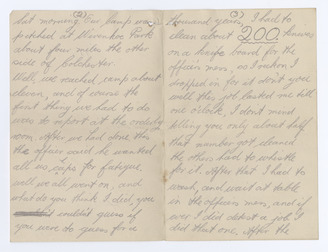 (2)
last morning. Our camp was
pitched at Mivenhoe Park
about four miles the other
side of Colchester.
Well, we reached camp about
eleven, and of course the
first thing we had to do
was to report at the orderly
room. After we had done this
the officer said he wanted
all us chaps for fatigue,
well we all went on, and
what do you think I did, you
wouldn't guess if
you were to guess for a
(3)
thousand years, I had to
clean about 200 knives
on a knife board for the
officers mess, so I reckon I
dropped in for it don't you
well this job lasted me till
one o'clock, I don't mind
telling you only about half
that number got cleaned
the others had to whistle
for it. After that I had to
wash, and wait at table
in the officers mess, and if
ever I did detest a job I
did that one. After the